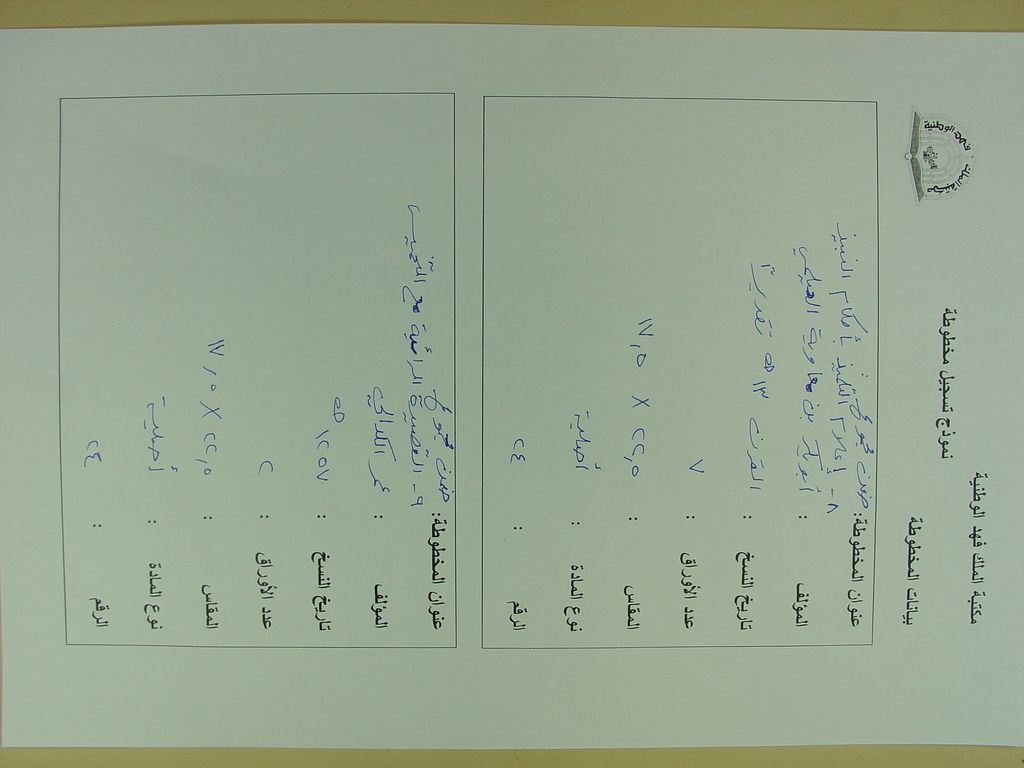 مكتبة الملك فهد الوطنية
نموذج تسجيل مخطوطة
بيانات المخطوطة
عنوان المخطوطة: ضمن مجموع
٨- إعلام التلميذ بأحكام النبيذ
المؤلف : أبو بكر بن معاوية العليمي
تاريخ النسخ : القرن ١٣ هـ تقديراً
عدد الأوراق : ٧
المقاس : ٢٢,٥ X ١٧,٥
نوع المادة : أصلية
الرقم : ٢٤
عنوان المخطوطة: ضمن مجموع
٩- القصيدة الرائية مع
المؤلف : عمر
تاريخ النسخ : ١٢٥٧ هـ
عدد الأوراق : ٢
المقاس : ٢٢,٥ X ١٧,٥
نوع المادة : أصلية
الرقم : ٢٤